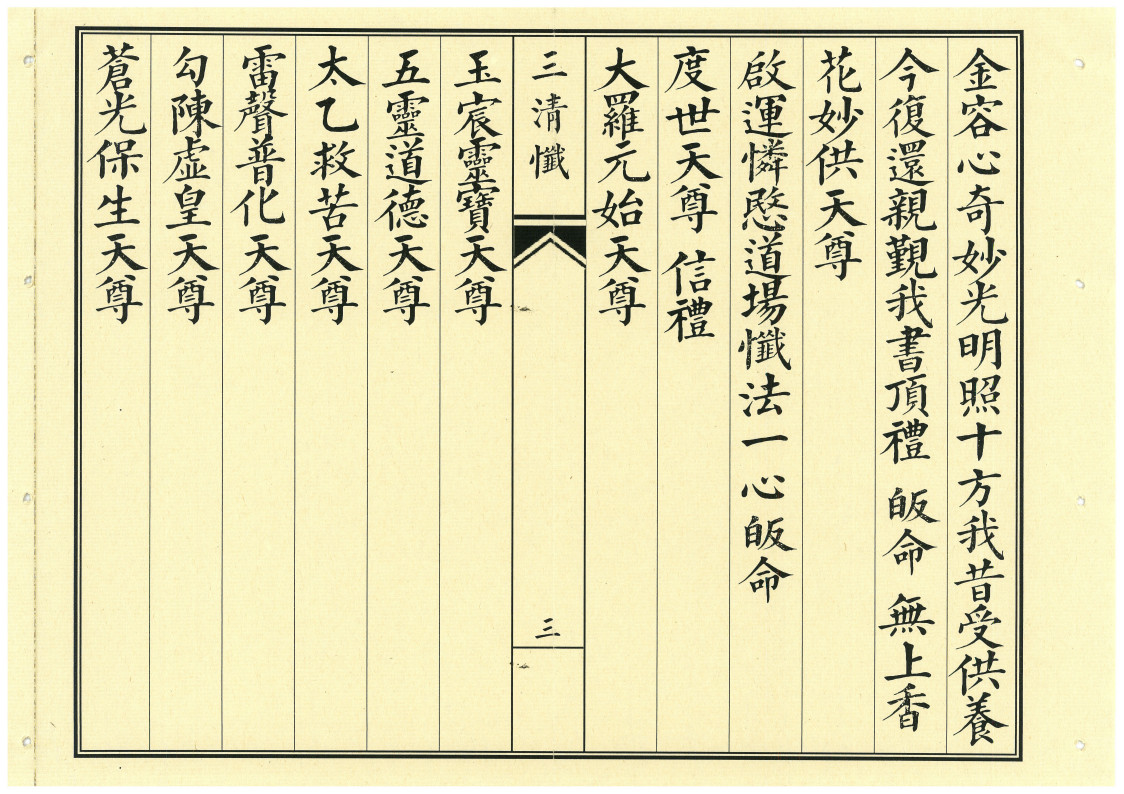 金容心奇妙光明照十方我昔受供養
今復還親覲我書頂禮 皈命 無上香
花妙供天尊
啟運憐愍道場懺法一心皈命
度世天尊 信禮
大羅元始天尊
三清懺 三
玉宸靈寶天尊
五靈道德天尊
太乙救苦天尊
雷聲普化天尊
勾陳虛皇天尊
蒼光保生天尊